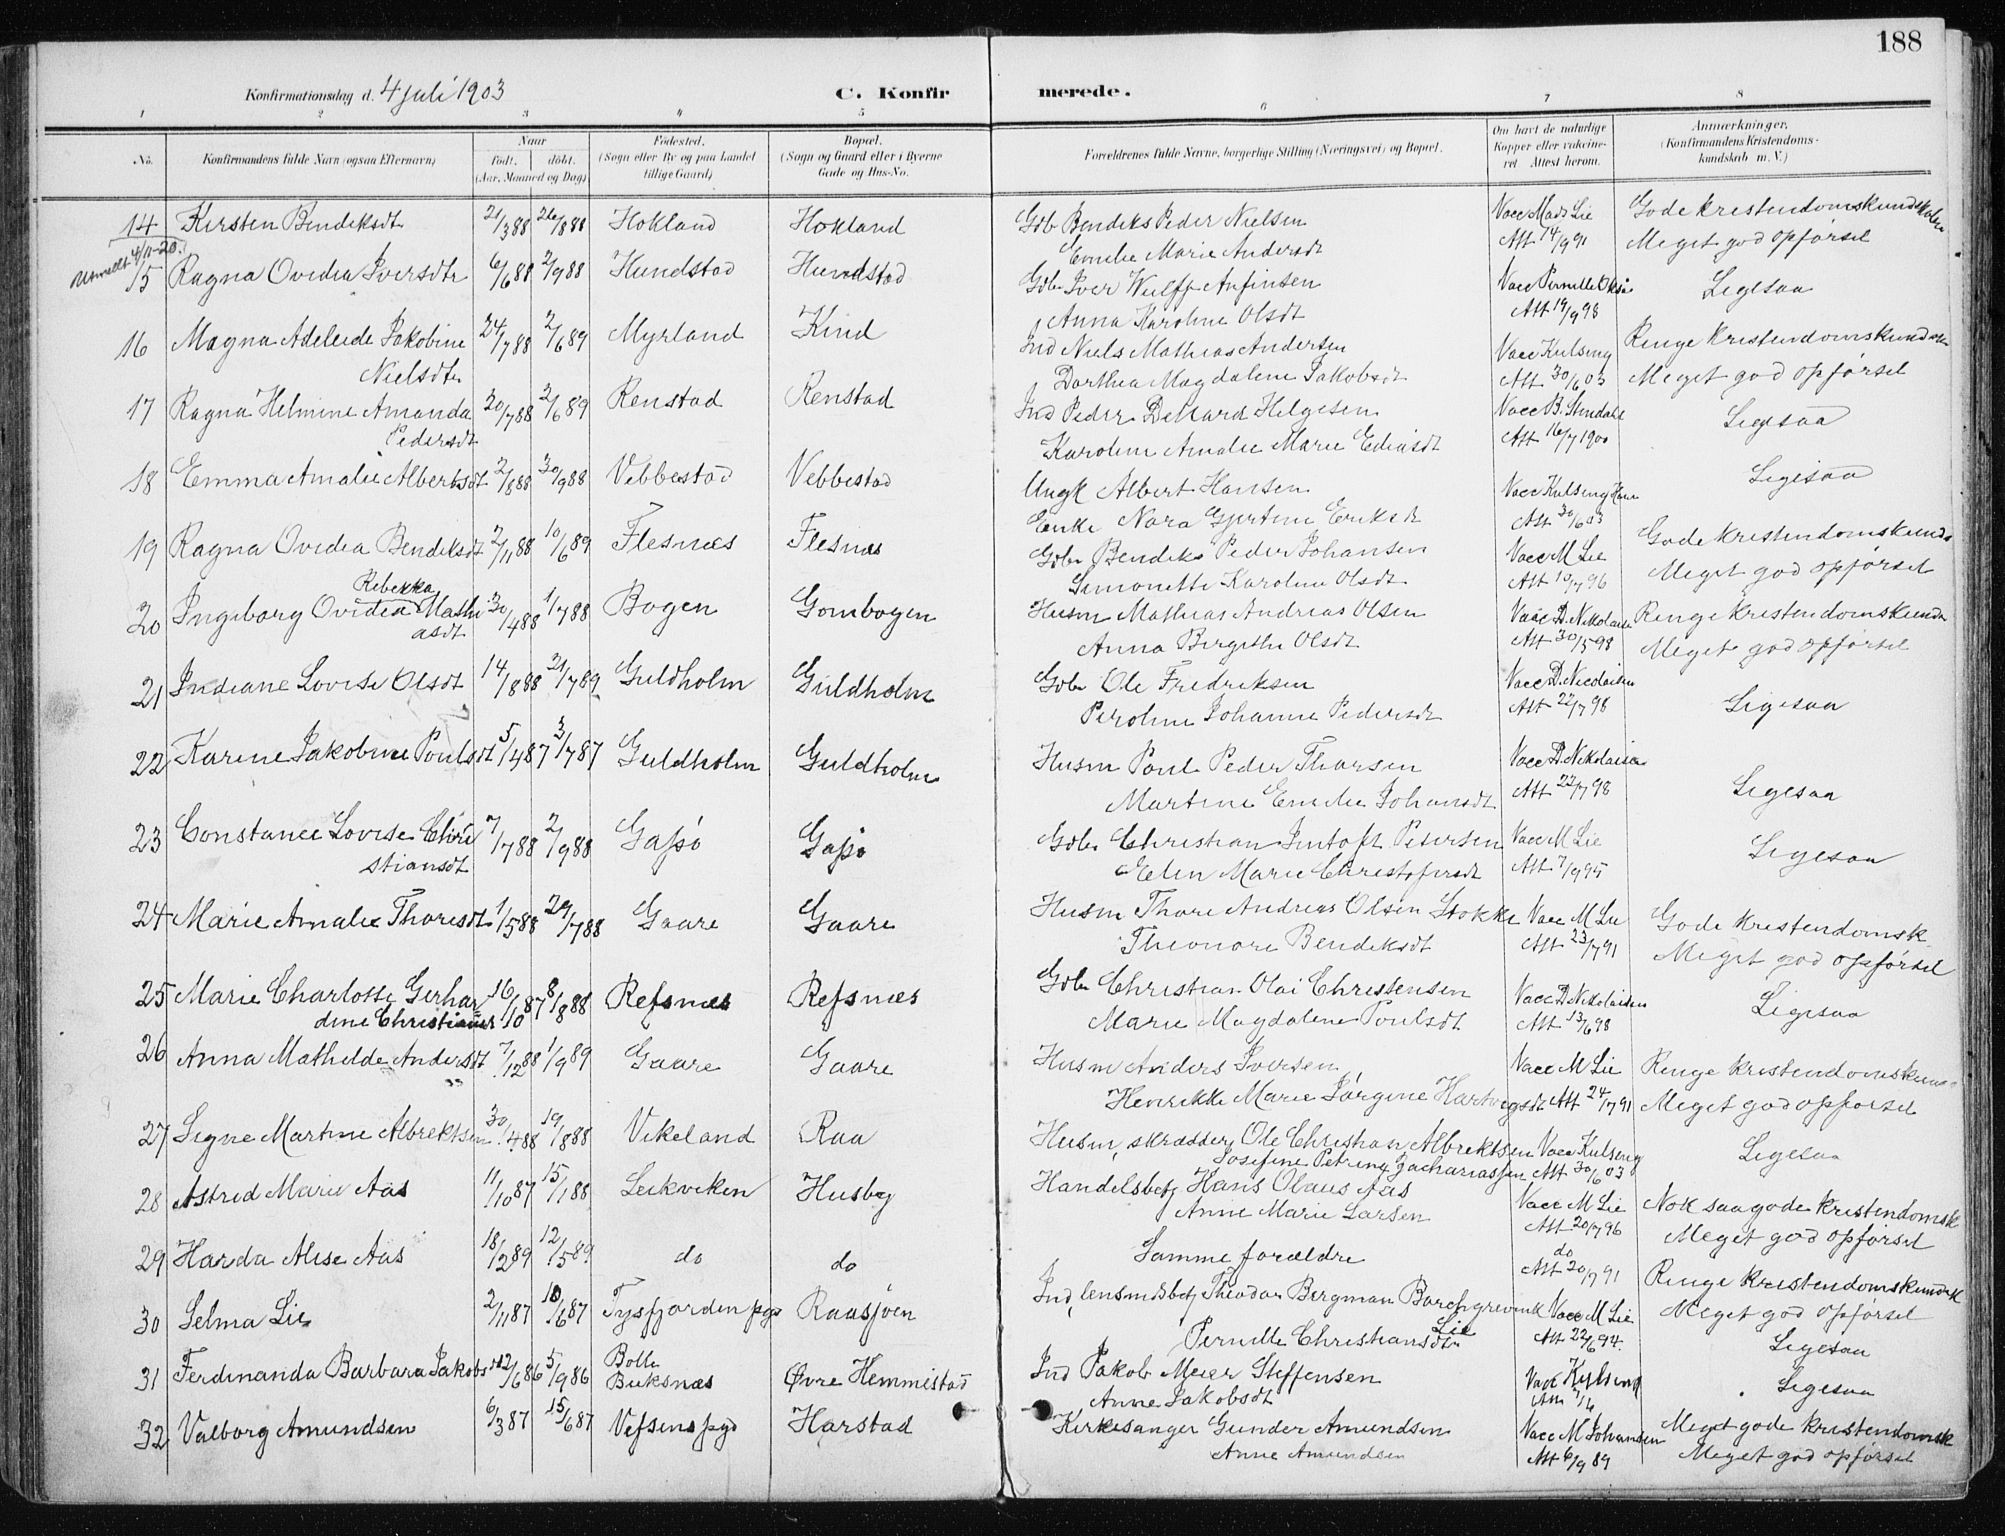 188
Konfirmationsdag d. 4 juli 1903
C. Konfirmerede.
1 2 3 4 5 6 7 8
No. Konfirmandens fulde Navn (ogsaa Efternavn) Naar født. døbt. (Aar, Maaned og Dag) Fødested. (Sogn eller By og paa Landet tillige Gaard) Bopæl. (Sogn og Gaard eller i Byerne Gade og Hus-No. Forældrenes fulde Navne, borgerlige Stilling (Næringsvei) og Bopæl. Om havt de naturlige Kopper eller vaccineret. Attest herom. Anmærkninger. (Konfirmandens Kristendomskundskab m. V.)
14 Kirsten Bendiksdt 21/3 88 26/8 88 Hokland Hokland Gdb Bendiks Peder Nielsen Vacc Mads Lie Gode kristendomskundskaber
Emelie Marie Andersdt Att 14/9 91 Meget god opførsel
Utmeldt 4/11-20.
15 Ragna Ovidia Iversdtr 6/6 88 2/9 88 Hundstad Hundstad Gdbr Iver Wulff Anfinsen Vacc Pernille Ligesaa
Anna Karoline Olsdt Att 19/9 98
16 Magna Adeleide Jakobine 24/7 88 2/6 89 Myrland Kind Ind Niels Mathias Andersen Vacc Kulseng Ringe kristendomskundsk
Nielsdtr Dorthea Magdalene Jakobsdt Att 30/6 03 Meget god opførsel
17 Ragna Helmine Amanda 20/7 88 2/6 89 Renstad Renstad Ind Peder Helgesen Vacc B. Stendahl Ligesaa
Pedersdt Karoline Amalie Marie Ediasdt Att 16/7 1900
18 Emma Amalie Albertsdt 2/8 88 30/9 88 Vebbestad Vebbestad Ungk Albert Hansen Vacc Kulseng Ligesaa
Enke Nora Gjertine Eriksdt Att 30/6 03
19 Ragna Ovedia Bendiksdt 2/11 88 10/6 89 Flesnæs Flesnæs Gdbr Bendiks Peder Johansen Vacc M Lie Gode kristendomskunds
Simonette Karoline Olsdt Att 10/7 96 Meget god opførsel
Rebekka
20 Ingeborg Ovedia Mathi 30/4 88 1/7 88 Bogen Gombogen Husm Mathias Andreas Olsen Vacc D. Nikolaisen Ringe kristendomskunds
asdt Anna Birgithe Olsdt Att 30/5 98 Meget god opførsel
21 Indiane Lovise Olsdt 14/8 88 21/7 89 Guldholm Guldholm Gdbr Ole Fredriksen Vacc D. Nicolaisen Ligesaa
Peroline Johanne Pedersdt Att 22/7 98
22 Karine Jakobine Poulsdt 5/4 87 3/7 87 Guldholm Guldholm Husm Poul Peder Thorsen Vacc D. Nikolaisen Ligesaa
Martine Emilie Johansdt Att 22/7 98
23 Constance Lovise Chri 7/7 88 2/9 88 Gapsø Gapsø Gdbr Christian Intoft Petersen Vacc M Lie Ligesaa
stiansdt Elen Marie Christofersdt Att 7/9 95
24 Marie Amalie Thoresdt 1/5 88 29/7 88 Gaare Gaare Husm Thore Andreas Olsen Stokke Vacc M Lie Gode kristendomsk
Theonore Bendiksdt Att 23/7 91 Meget god opførsel
25 Marie Charlotte Gerhar 16/10 87 8/8 88 Refsnæs Refsnæs Gdbr Christian Olai Christensen Vacc D. Nikolaisen Ligesaa
dine Christiansdt Marie Magdalene Poulsdt Att 13/6 98
26 Anna Mathilde Andersdt 7/12 88 1/9 89 Gaare Gaare Husm Anders Iversen Vacc M Lie Ringe kristendomskuns
Henrikke Marie Jørgine Hartvigsdt Att 24/7 91 Meget god opførsel
27 Signe Martine Albrektsen 30/4 88 19/8 88 Vikeland Raa Husm, skrædder Ole Christian Albrektsen Vacc Kulseng Ligesaa
Josefine Petrine Zachariassen Att 30/6 03
28 Astrid Marie Aas 11/10 87 15/1 88 Leikviken Husby Handelsbetj Hans Olaus Aas Vacc M Lie Nok saa gode kristendomsk
Anne Marie Larsen Att 20/7 96 Meget god opførsel
29 Harda Alise Aas 18/2 89 12/5 89 do do Samme forældre do Ringe kristendomskundsk
Att 20/7 91 Meget god opførsel
30 Selma Lie 2/11 87 10/6 87 Tysfjorden pgd Raasjøen Ind, lensmdsbetj Theodor Bergman Borchgrevink Vacc M Lie
Lie
Pernille Christiansdtr Att 22/6 94. Ligesaa
31 Ferdinanda Barbara Jakobsdt 12/6 86 5/9 86 Bolle Øvre Hemmistad Ind Jakob Meier Steffensen Vacc Kulseng Ligesaa
Buksnæs Anne Jakobsdt
32 Valborg Amundsen 6/3 87 15/6 87 Vefsens pgd Harstad Kirkesanger Gunder Amundsen Vacc M Johansen Meget gode kristendomsk
Anne Amundsen Att 6/9 89 Meget god opførsel